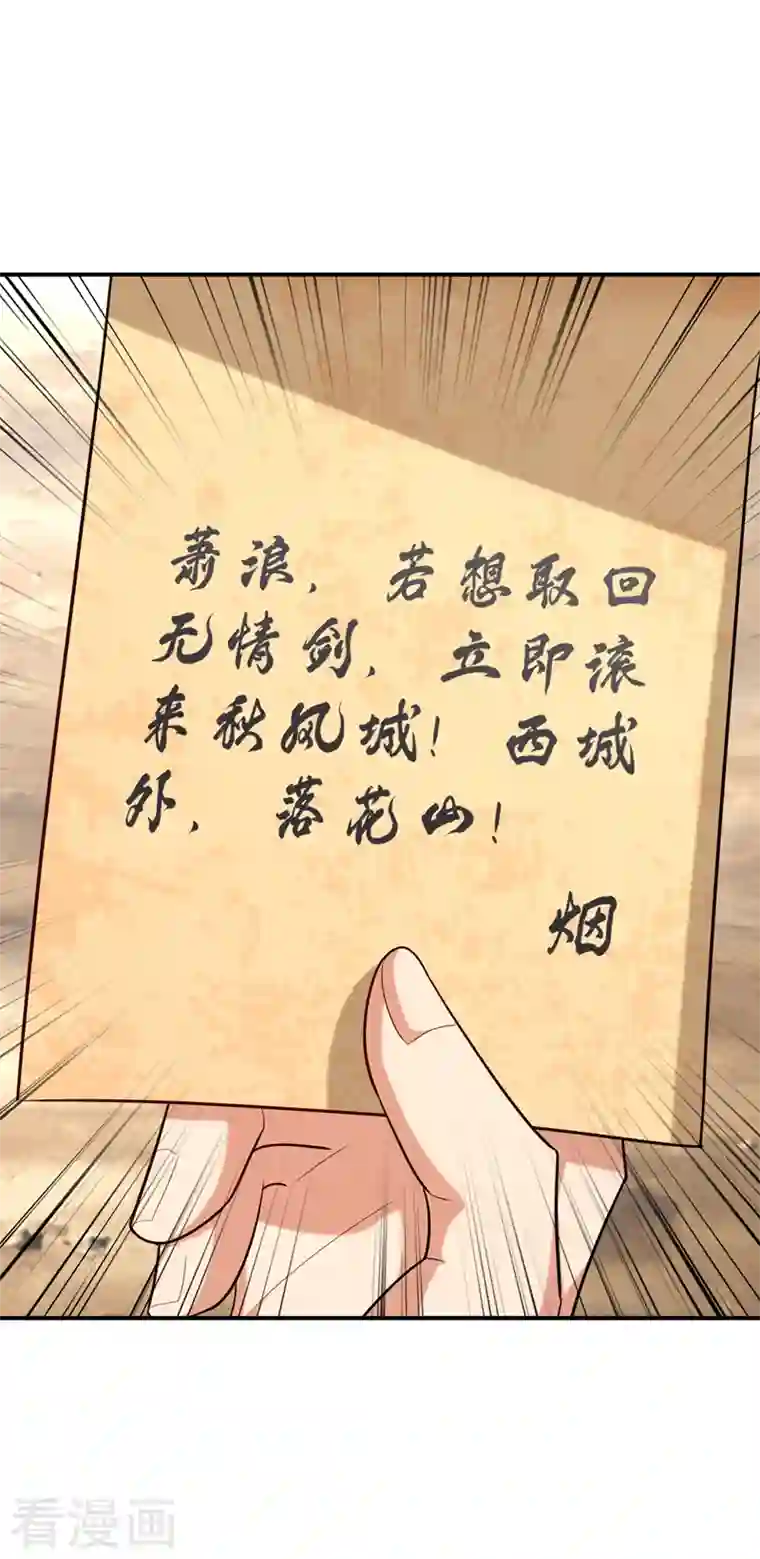 萧浪，若想取回
无情剑，立即滚
来秋风城！西城
外，落花山！
烟
看漫画